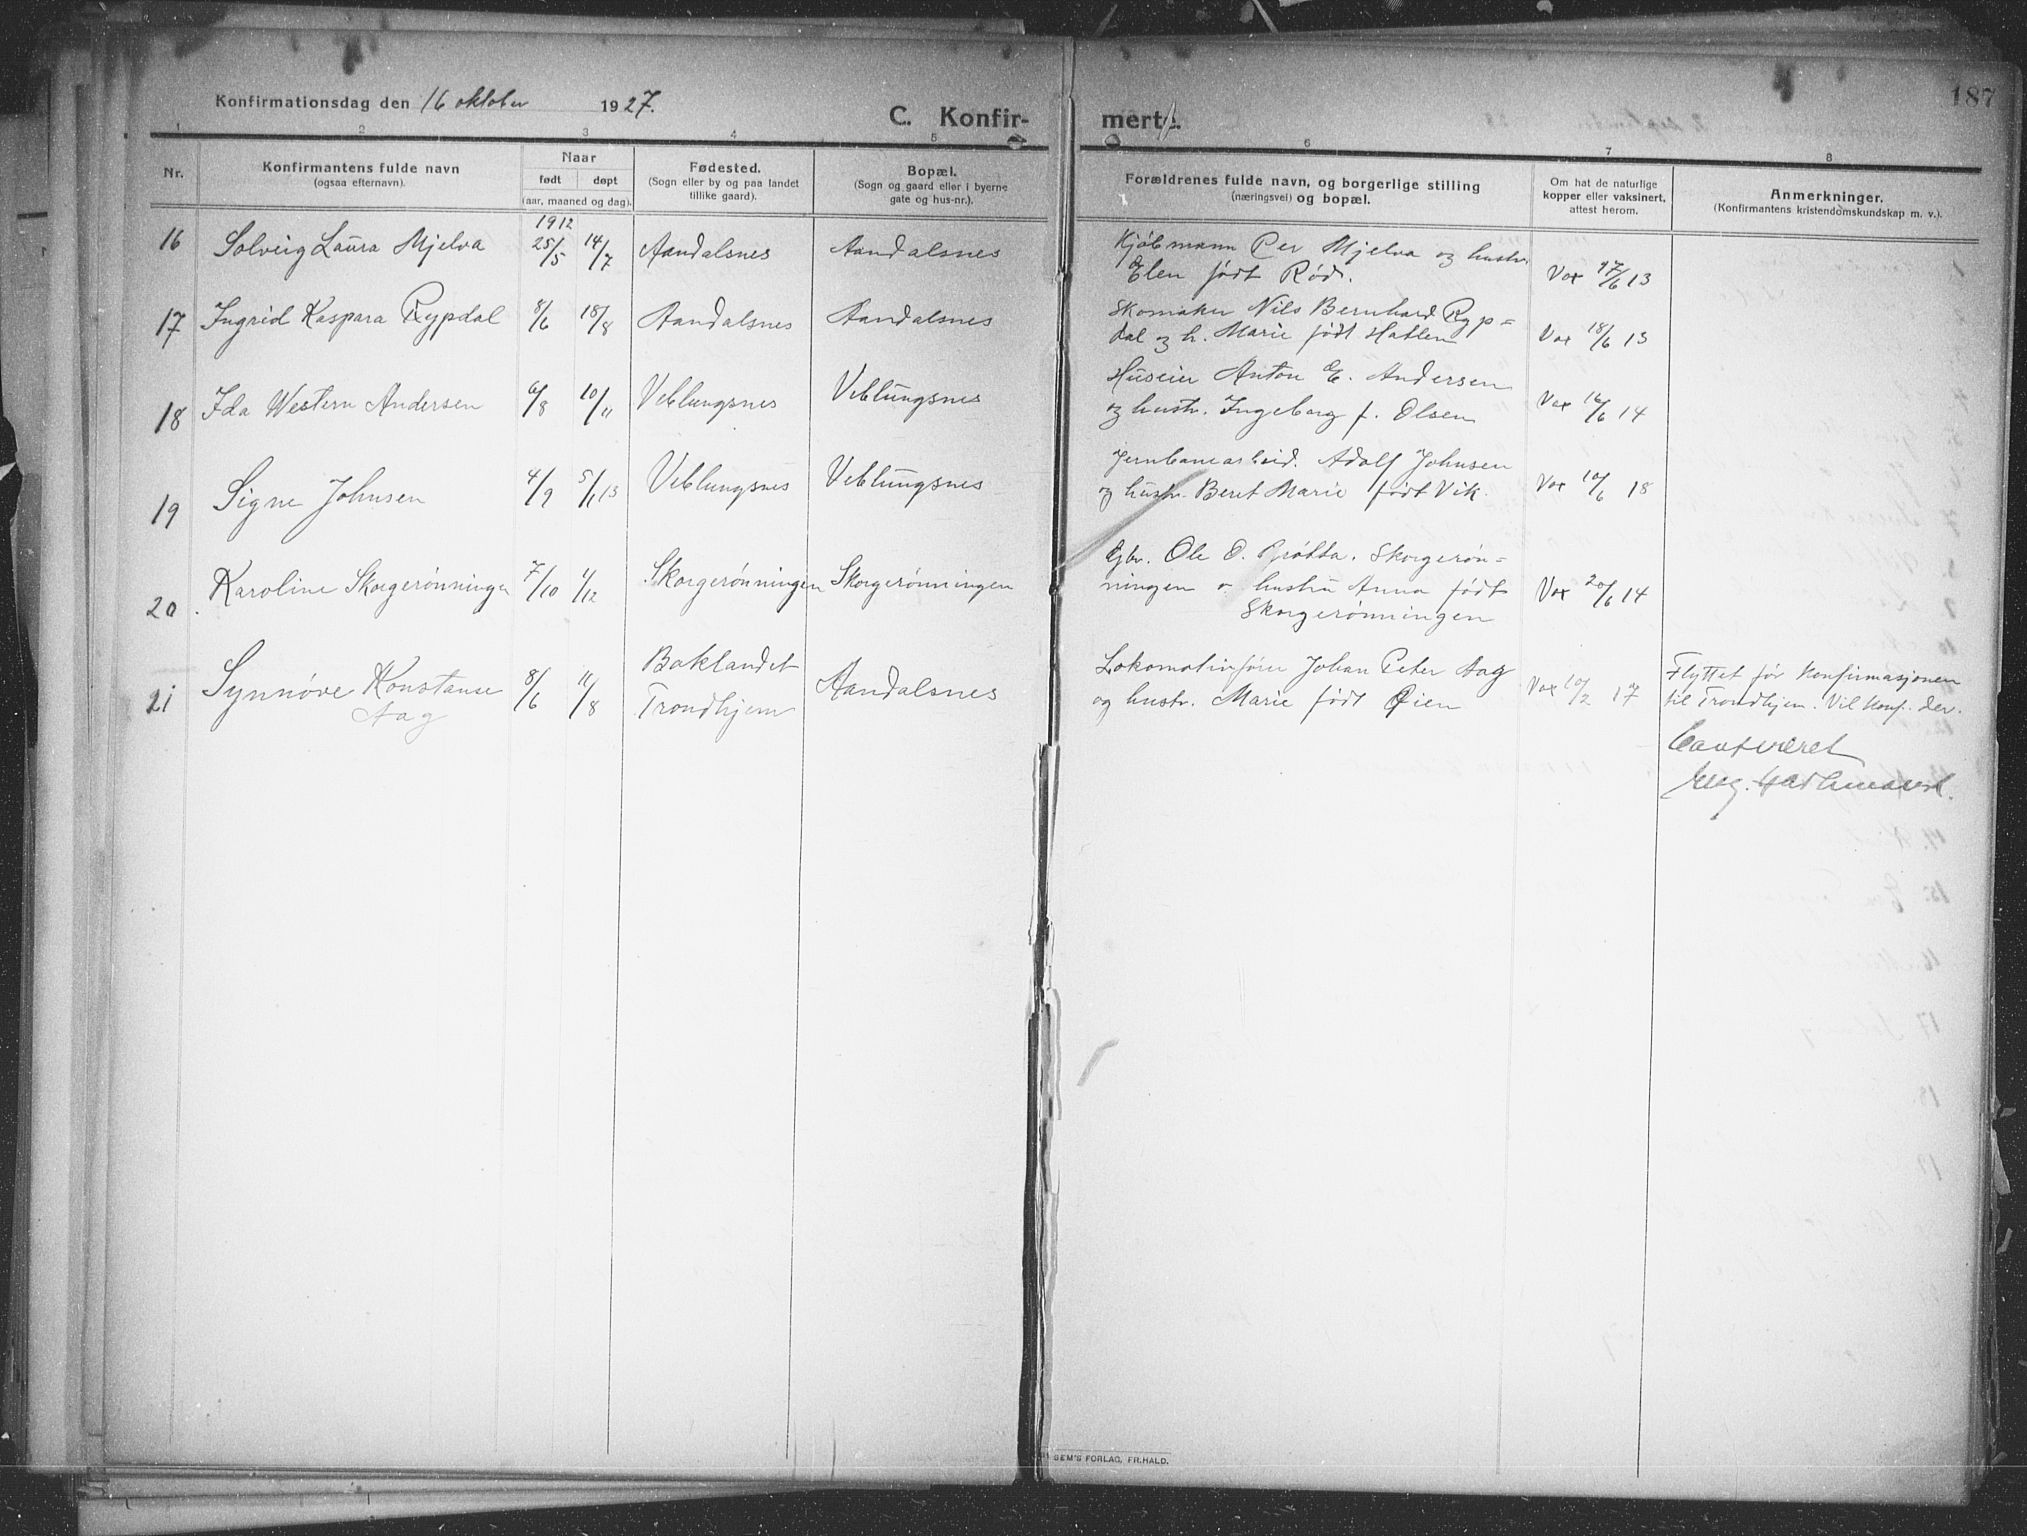 Konfirmationsdag den 16 oktober 1927.
C. Konfirmerte.
187
1 2 3 4 5 6 7 8
Nr.
Konfirmantens fulde navn
(ogsaa efternavn).
Naar
født døpt
(aar, maaned og dag).
Fødested.
(Sogn eller by og paa landet
tillike gaard).
Bopæl.
(Sogn og gaard eller i byerne
gate og hus-nr.).
Forældrenes fulde navn, og borgerlige stilling
(næringsvei) og bopæl.
Om hat de naturlige
kopper eller vaksinert,
attest herom.
Anmerkninger.
(Konfirmantens kristendomskundskap m. v.).
1912
16 Solveig Laura Mjelva 25/5 14/7 Aandalsnes Aandalsnes
Kjøbmann Per Mjelva og hustr.
Elen født Rød.
Vax 17/6 13
17 Ingrid Kaspara Rypdal 8/6 18/8 Aandalsnes Aandalsnes
Skomaker Nils Bernhard Ryp=
dal og h. Marie født Hatlen
Vax 18/6 13
18 Ida Western Andersen 6/8 10/11 Veblungsnes Veblungsnes
Huseier Anton E. Andersen
og hustr. Ingeborg f. Olsen
Vax 16/6 14
19 Signe Johnsen 4/9 5/1 13 Veblungsnes Veblungsnes
Jernbanearbeid. Adolf Johnsen
og hustr. Beret Marie født Vik.
Vax 10/6 18
20. Karoline Skorgerønningen 7/10 1/12 Skorgerønningen Skorgerønningen
Gbr. Ole O. Brøtta. Skorgerøn=
ningen o. hustru Anna født
Skorgerønningen
Vax 20/6 14
21 Synnøve Konstanse
Aag
8/6 11/8
Baklandet
Trondhjem
Aandalsnes
Lokomotivfører Johan Peter Aag
og hustr. Marie født Øien
Vax 10/2 17
Flyttet før Konfirmasjonen
til Trondhjem. Vil konf. der.
SEM'S FORLAG, FR.HALD.